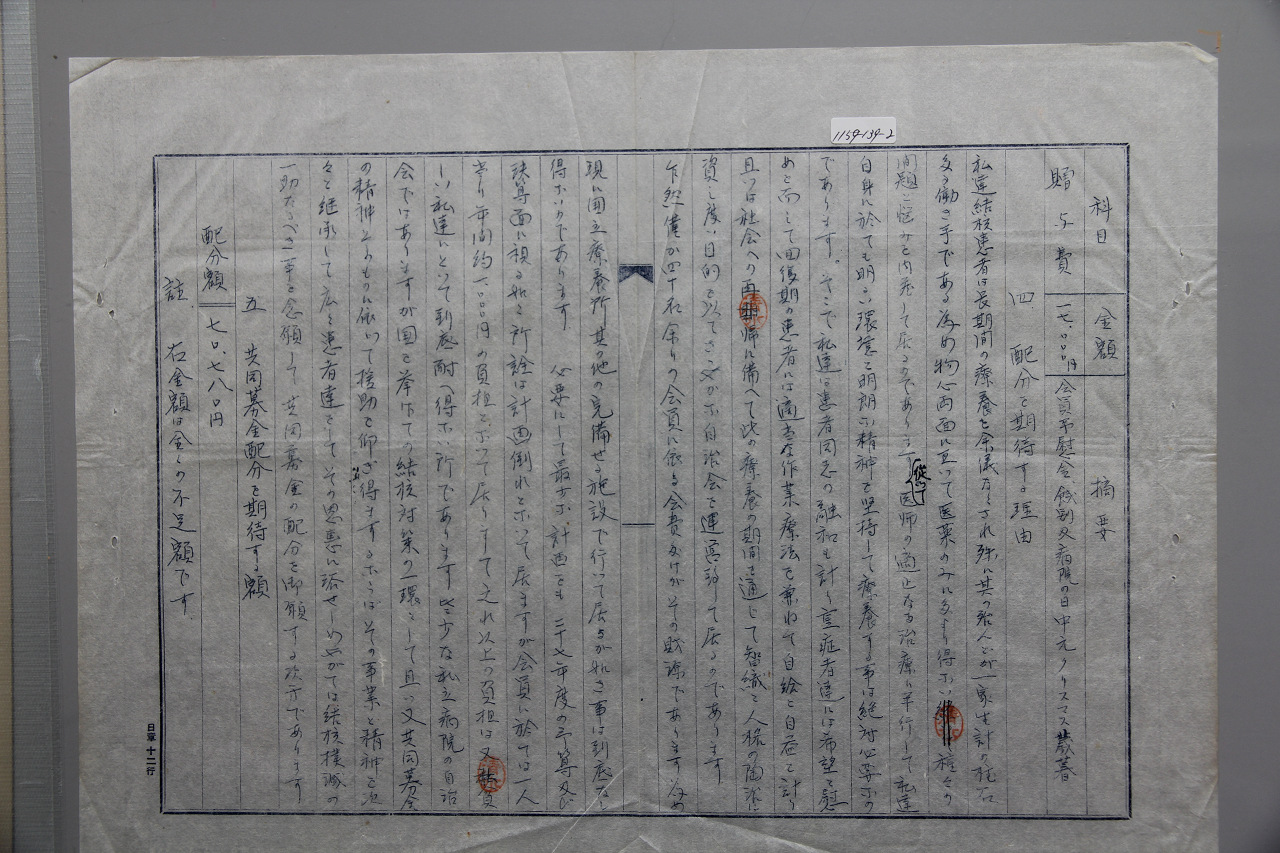 1154-134-2
科目　金額　摘要
贈与費　一七.〇〇〇円　会員弔慰金餞別及病院の日中元クリスマス歳暮
四　配分を期待する理由
私達結核患者は長期間の療養を余儀なくされ殊に其の殆んどが一家生計の柱石
多き働き手である為め物心両面に亘って医薬のみにより得ない種々の
問題に悩みを内底して居るのであります従って医師の適正なる治療に平行して私達
自身に於ても明るい環境と明朗な精神を堅持して療養する事は絶対必要なの
であります。そこで私達は患者同志の融和を計り重症者達には希望と慰
めを而して回復期の患者には適当な作業療法を兼ねて自給と自益を計り
且つは社会への再帰に備へて此の療養の期間を通じて智織と人格の陶冶に
資し度い目的を以てさゝやかな自治会を運営致して居るのであります
乍然僅か四十名余りの会員に依る会費だけがその財源であります為め
現に国立療養所其の他の完備せる施設で行って居るが如き事は到底なし
得ないのであります　必要にして最少な計画をも二十七年度の予算及び
決算面に視る如く所詮は計画倒れとなって居ますが会員に於ては一人
当り年間約一〇〇〇円の負担となって居りまして之れ以上の負担は又貧
しい私達にとって到底耐へ得ない所であります些少な私立病院の自治
会ではありますが国を挙げての結核対策の一環として且つ又共同募金
の精神とに依って援助を仰ぎ得ますならばその事業と精神を次
々と継承して広く患者達をしてその恩恵に浴せしめやがては結核撲滅の
一助たるべき事を念願して共同募金の配分を御願する次第であります
五　共同募金配分を期待する額
配分額　七〇.七八〇円
註.　右金額は金の不足額です.
日軍十二行